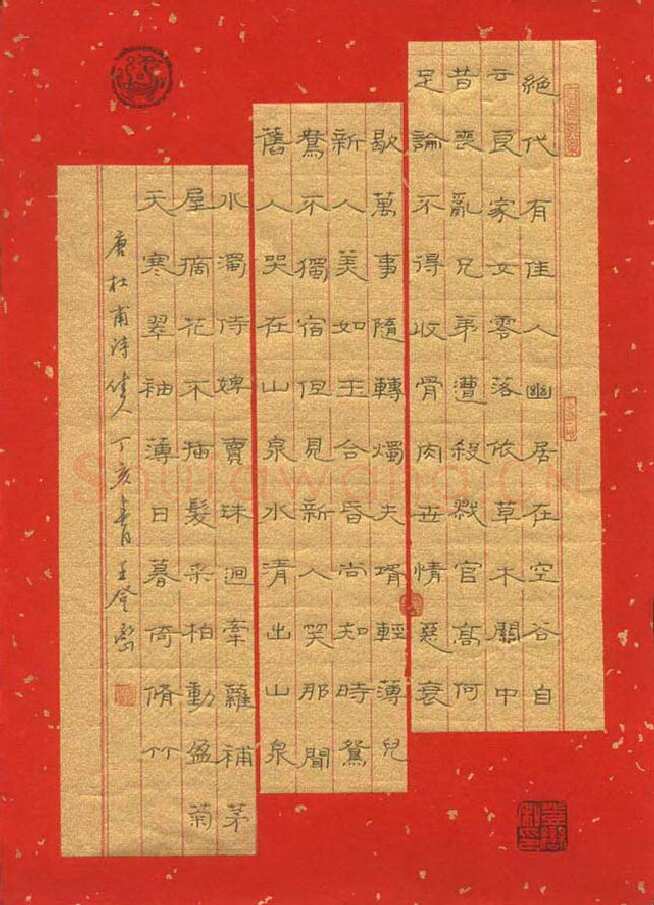 絶代有佳人幽居在空谷自
云良家女零落依草木關中
昔喪亂兄弟遭殺戮官高何
足論不得收骨肉世情惡衰
歇萬事隨轉燭夫壻輕薄兒
新人美如玉合昏尚知時鴛
鴦不獨宿但見新人笑那聞
舊人哭在山泉水清出山泉
水濁侍婢賣珠迴牽蘿補茅
屋摘花不插髮采柏動盈菊
天寒翠袖薄日暮倚脩竹
唐杜甫詩佳人丁亥